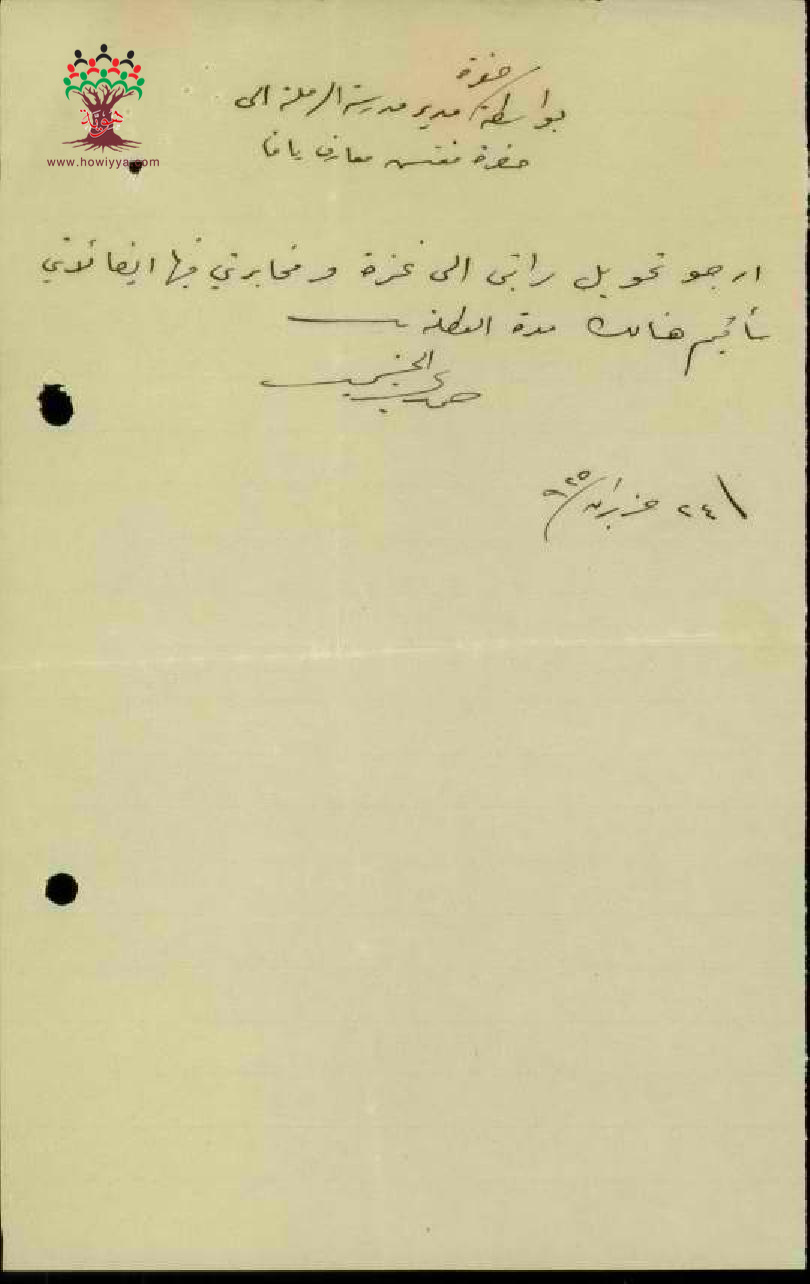 هوية
www.howiyya.com
حضرة
بواسطة مدير مدرسة الرملة الى
حضرة مفتش معارف يافا
ارجو تحويل راتبي الى غزة و مخابرتي فيها ايضا لانني
سأقيم هنالك مدة العطلة
حمدي الحسيني
٢٤ حزيران ٩٢٥